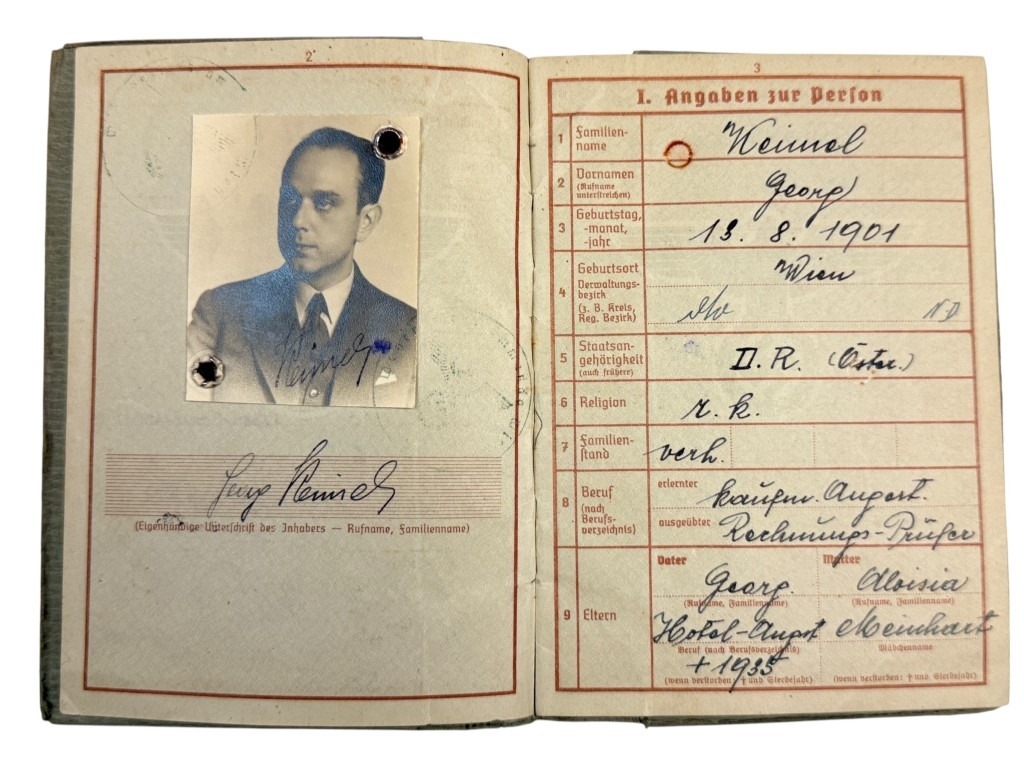 2
Weimel
Georg Weimel
(Eigenhändige Unterschrift des Inhabers — Rufname, Familienname)
3
I. Angaben zur Person
1 Familien-
name
Weimel
2 Vornamen
(Rufname
unterstreichen)
Georg
3 Geburtstag,
-monat,
-jahr
13. 8. 1901
4 Geburtsort
Verwaltungs-
bezirk
(z. B. Kreis,
Reg. Bezirk)
Wien
dto
ND
5 Staatsan-
gehörigkeit
(auch frühere)
D. R. (Österr.)
6 Religion
r. k.
7 Familien-
stand
verh.
8 Beruf
(nach
Berufs-
verzeichnis)
erlernter
kaufm. Angest.
ausgeübter
Rechnungs-Prüfer
9 Eltern
Vater
Mutter
Georg
Aloisia
(Rufname, Familienname)
(Rufname, Familienname)
Hotel-Angst
Meinhart
Beruf (nach Berufsverzeichnis)
Mädchenname
+ 1935
(wenn verstorben: † und Sterbejahr)
(wenn verstorben: † und Sterbejahr)